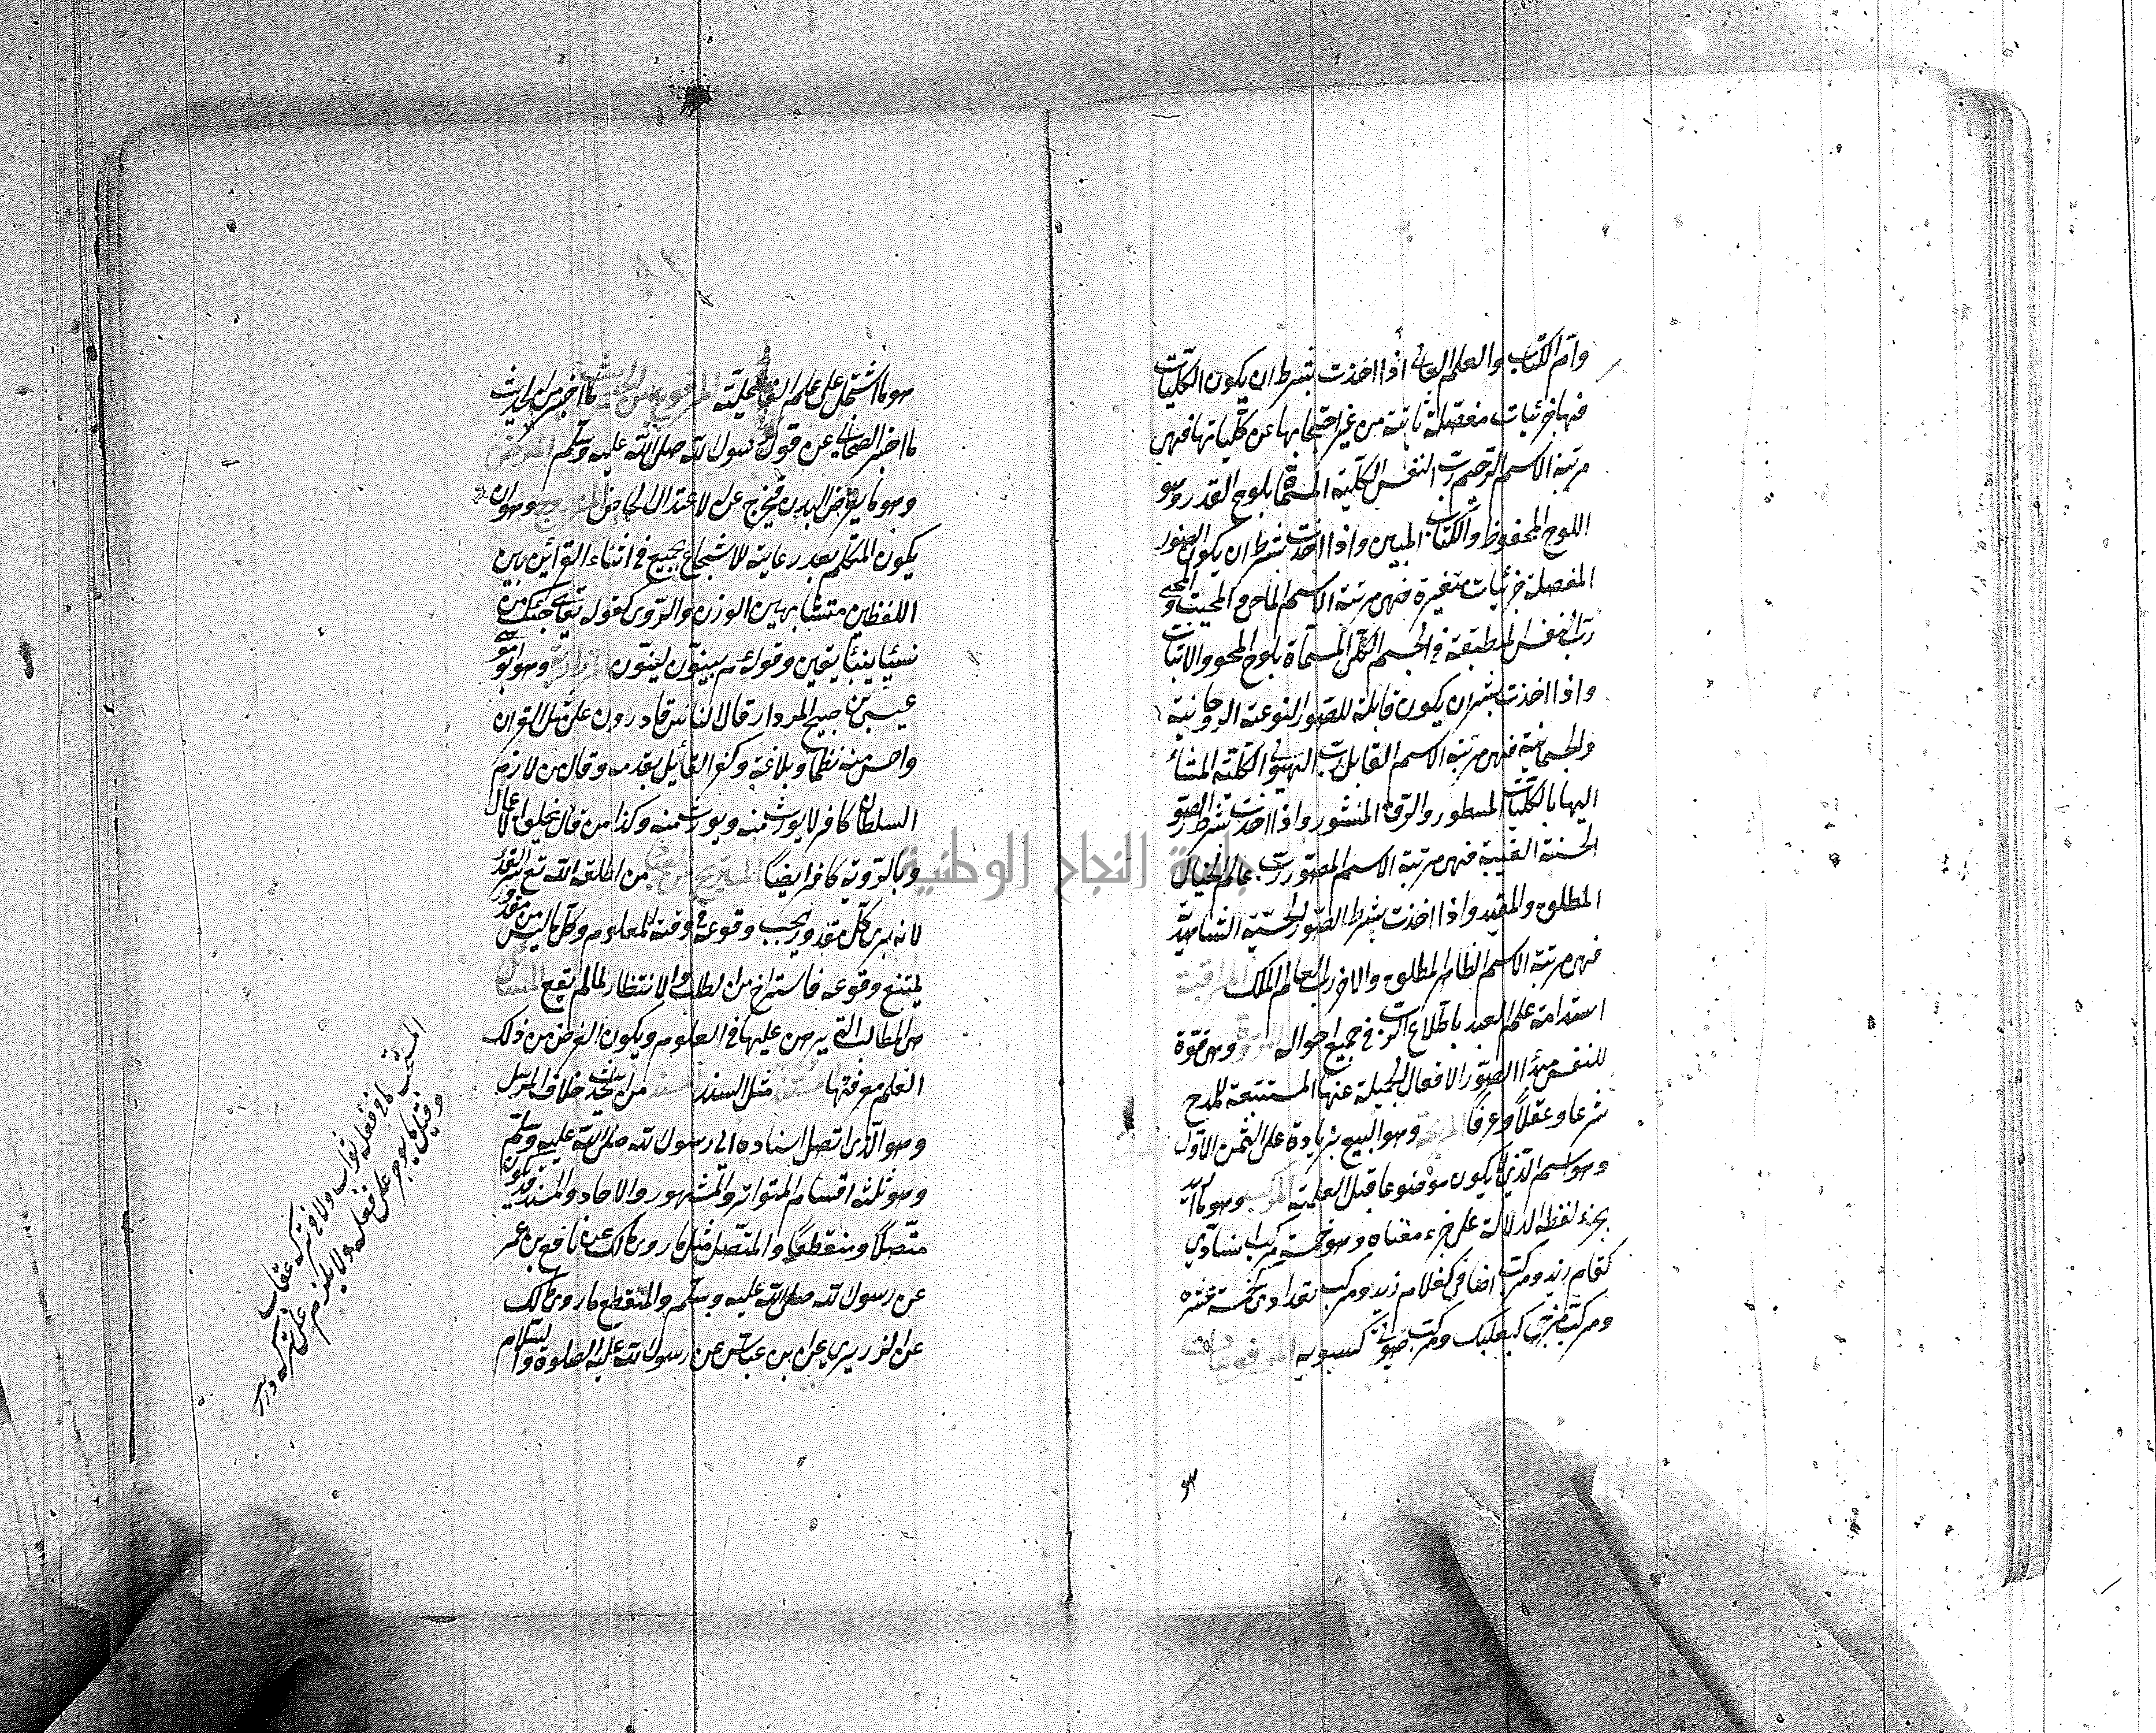 وام الكتاب والعلم العالى اذا اخذت بشرط ان يكون الكليات
فيها جزئيات مفصلة ثابتة من غير احتجابها عن كلياتها فهى
مرتبة الاسم الرحيم رب النفس الكلية المسماة بلوح القدر وهو
اللوح المحفوظ والكتاب المبين واذا اخذت بشرط ان يكون الصور
المفصلة جزئيات متغيرة فهى مرتبة الاسم الماحى والمحيى
رب النفس المنطبقة فى الجسم الكلى المسماة بلوح المحو والاثبات
واذا اخذت بشرط ان يكون قابلة للصور النوعية الروحانية
والجسمانية فهى مرتبة الاسم القابل رب الهيولى الكلية المشار
اليها بالكتاب المسطور والرق المنشور واذا اخذت بشرط الصور
الحسية الغيبية فهى مرتبة الاسم المصور رب عالم الخيال
المطلق والمقيد واذا اخذت بشرط الصور الحسية الشهادية
فهى مرتبة الاسم الظاهر المطلق والاخر رب عالم الملك المراقبة
استدامة علم العبد باطلاع الرب فى جميع احواله المروة وهى قوة
للنفس مبدأ لصدور الافعال الجميلة عنها المستتبعة للمدح
شرعا وعقلا وعرفا المرابحة وهو البيع بزيادة على الثمن الاول
وهو اسم الذى لا يكون موضوعا قبل العلمية المركب وهو ما اريد
بجزء لفظه الدلالة على جزء معناه وهو خمسة مركب اسنادى
كقام زيد ومركب اضافى كغلام زيد ومركب تعدادى كخمسة عشر
ومركب مزجى كبعلبك ومركب صوتى كسيبويه المرفوعات
هو
هو ما اشتمل على علم الفاعلية المرفوع من الحديث ما اخبر من الحديث
ما اخبر الصحابى عن قول رسول الله صلى الله عليه وسلم المرض
وهو ما يعرض البدن فيخرج عن الاعتدال الخاص المزدوج وهو ان
يكون المتكلم بعد رعايته للاسجاع يجمع فى اثناء القرائن بين
اللفظين متشابهين الوزن والروى كقوله تعالى جئتك من
سبأ بنبأ يقين وقوله هم هينون لينون المزدارية وهو ابو موسى
عيسى بن صبيح المردار قال الناس قادرون على مثل القران
واحسن منه نظما وبلاغة وكفر القائل بقدمه وقال من لازم
السلطان كافر لا يورث منه ويورث منه وكذا من قال بخلق الاعمال
وبالرؤية كافر ايضا المستريح من العباد من اطلعه الله تع سر القدر
لانه يرى كل مقدور يجب وقوعه فى وقته المعلوم وكل ما ليس بمقدور
يمتنع وقوعه فاستراح من الطلب والانتظار لما لم يقع المسائل
هى المطالب التى يبرهن عليها فى العلوم ويكون الغرض من ذلك
العلم معرفتها مستند مثل السند المسند من الحديث خلاف المرسل
وهو الذى اتصل اسناده الى رسول الله صلى الله عليه وسلم
وهو ثلثة اقسام المتواتر والمشهور والاحاد والمسند قد يكون
متصلا ومنقطعا والمتصل مثل ما روى مالك عن نافع بن عمر
عن رسول الله صلى الله عليه وسلم والمنقطع ما روى مالك
عن الزهرى عن ابن عباس عن رسول الله عليه الصلوة والسلام
المستحب ما فى فعله ثواب ولا فى تركه عقاب
وقيل ما يوجر على فعله ولا يلزم على تركه
جامعة النجاح الوطنية